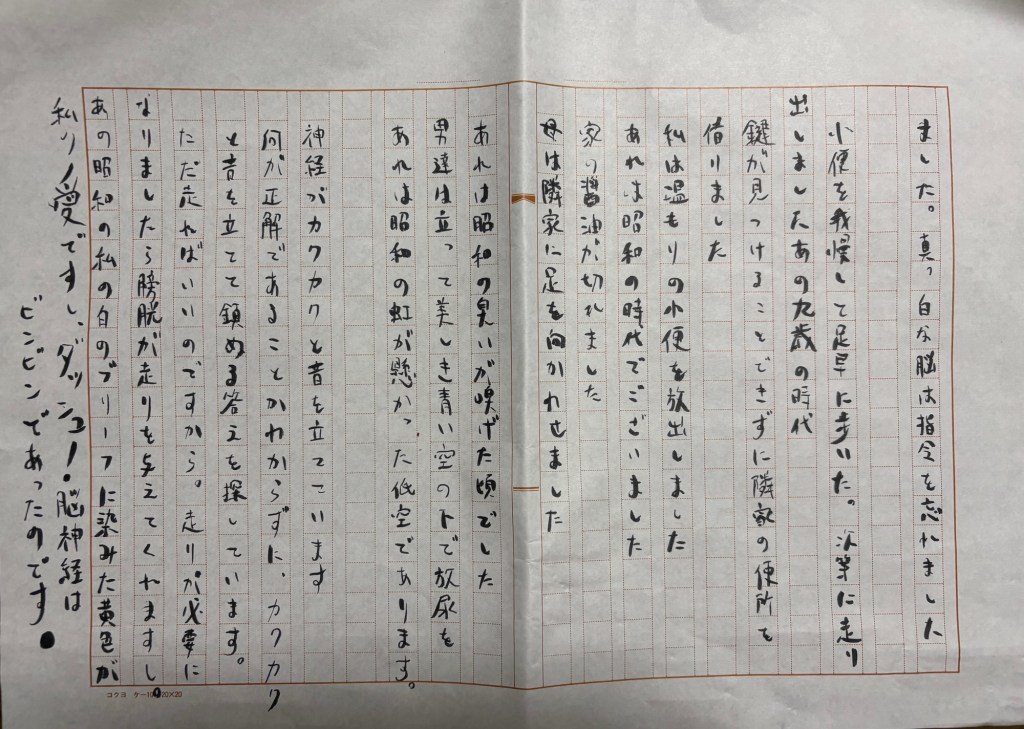 ました。真っ白な脳は指令を忘れました
小便を我慢して足早に歩いた。次第に走り
出しましたあの九歳の時代
鍵が見つけることできずに隣家の便所を
借りました
私は温もりの小便を放出しました
あれは昭和の時代でございました
家の醤油が切れました
母は隣家に足を向かわせました
あれは昭和の臭いが嗅げた頃でした
男達は立って美しき青い空の下で放尿を
あれは昭和の虹が懸かった低空であります。
神経がカクカクと音を立てています
何が正解であることかわからずに、カクカク
と音を立てて鎮める答えを探しています。
ただ走ればいいのですから。走りが必要に
なりましたら膀胱が走りを与えてくれますし。
あの昭和の私の白のブリーフに染みた黄色が
私り人愛ですし、ダッシュ!脳神経は
ビンビンであったのです●
コクヨ ケー10 20×20